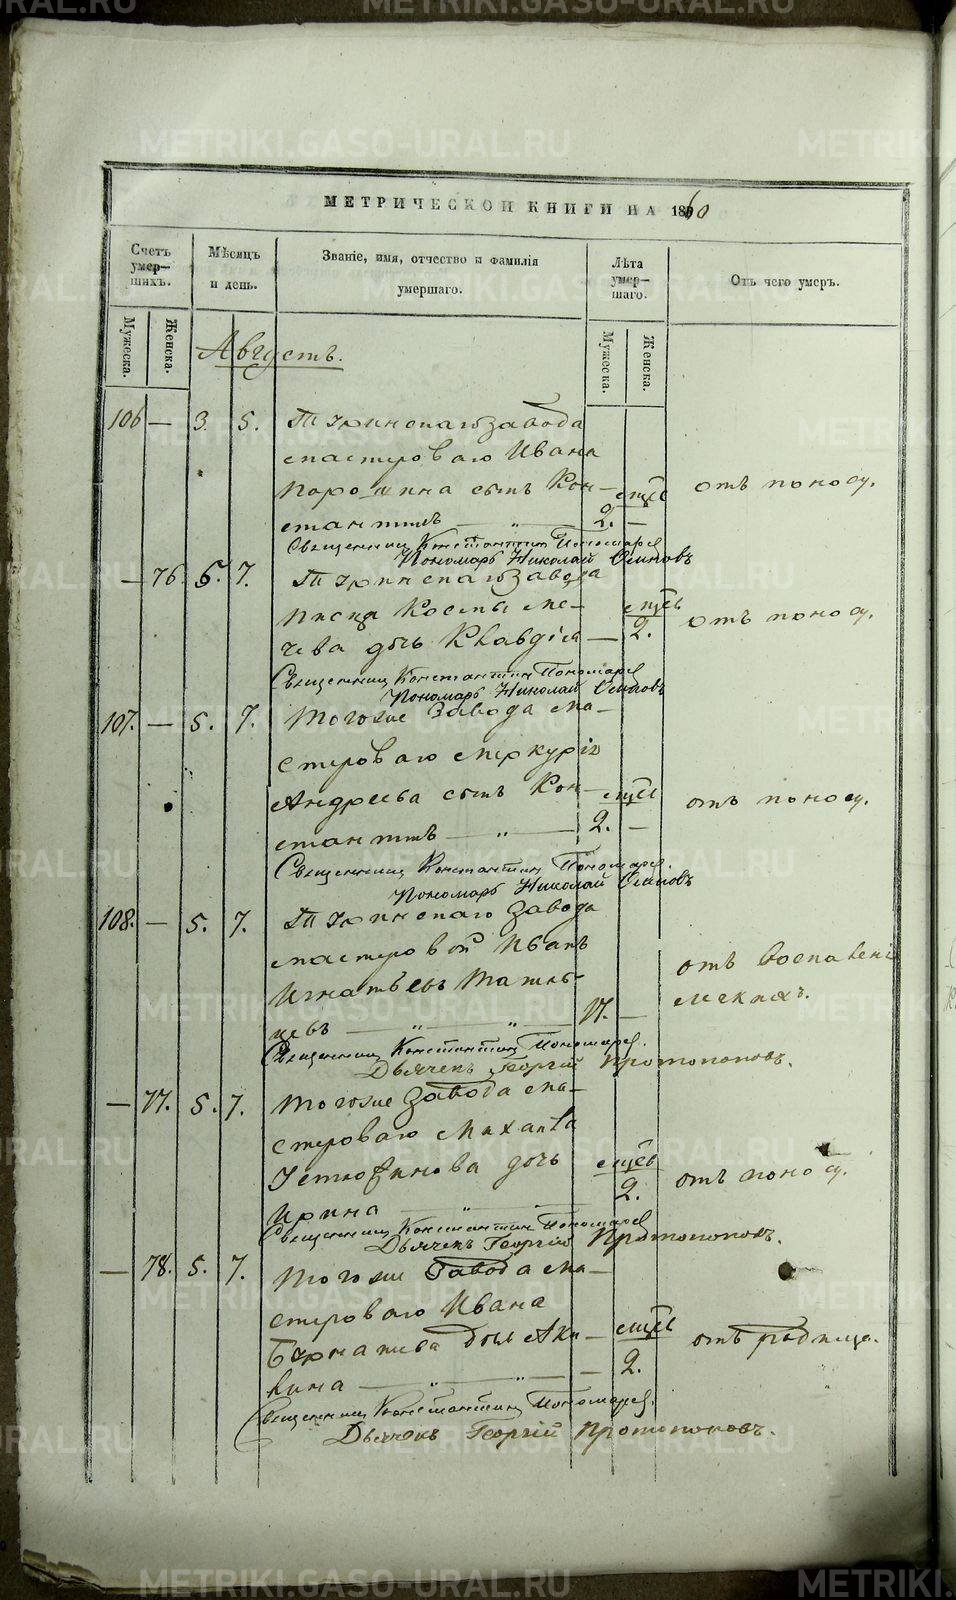 METRIKI.GASO-URAL.RU
МЕТРИЧЕСКОЙ КНИГИ НА 1860
Счетъ умер-шихъ.
Мѣсяцъ и день.
Званіе, имя, отчество и фамилія умершаго.
Лѣта умер-шаго.
Отъ чего умеръ.
Мужеска.
Женска.
Мужеска.
Женска.
Августъ.
106 — 3. 5. Туринскаго завода
мастероваго Ивана
сынъ Кон- мцъ отъ поносу.
стантинъ — „ — 2. —
Священникъ Константинъ Пономаревъ
Пономарь Николай Осиповъ
— 76. 5. 7. Туринскаго завода
писца Космы Ме- мцъ
чева дочь Клавдія — 2. отъ поносу.
Священникъ Константинъ Пономаревъ
Пономарь Николай Осиповъ
107. — 5. 7. Тогоже Завода ма-
стероваго Меркурія
Андреева сынъ Кон- мцъ отъ поносу.
стантинъ — „ — 2. —
Священникъ Константинъ Пономарев.
Пономарь Николай Осиповъ
108. — 5. 7. Туринскаго Завода
мастеровой Иванъ
Игнатьевъ отъ воспаленія
цевъ — „ — „ — 17. — легкихъ.
Священникъ Константинъ Пономарев.
Дьячекъ Георгій Протопоповъ.
— 77. 5. 7. Тогоже Завода ма-
стероваго Михаила
дочь мцъ
Ирина — „ — 2. отъ поносу.
Священникъ Константинъ Пономаревъ
Дьячекъ Георгій Протопоповъ.
— 78. 5. 7. Тогоже Завода ма-
стероваго Ивана
дочь Аки- мцъ отъ родимца.
лина — „ — „ — 2.
Священникъ Константинъ Пономарев.
Дьячекъ Георгій Протопоповъ.